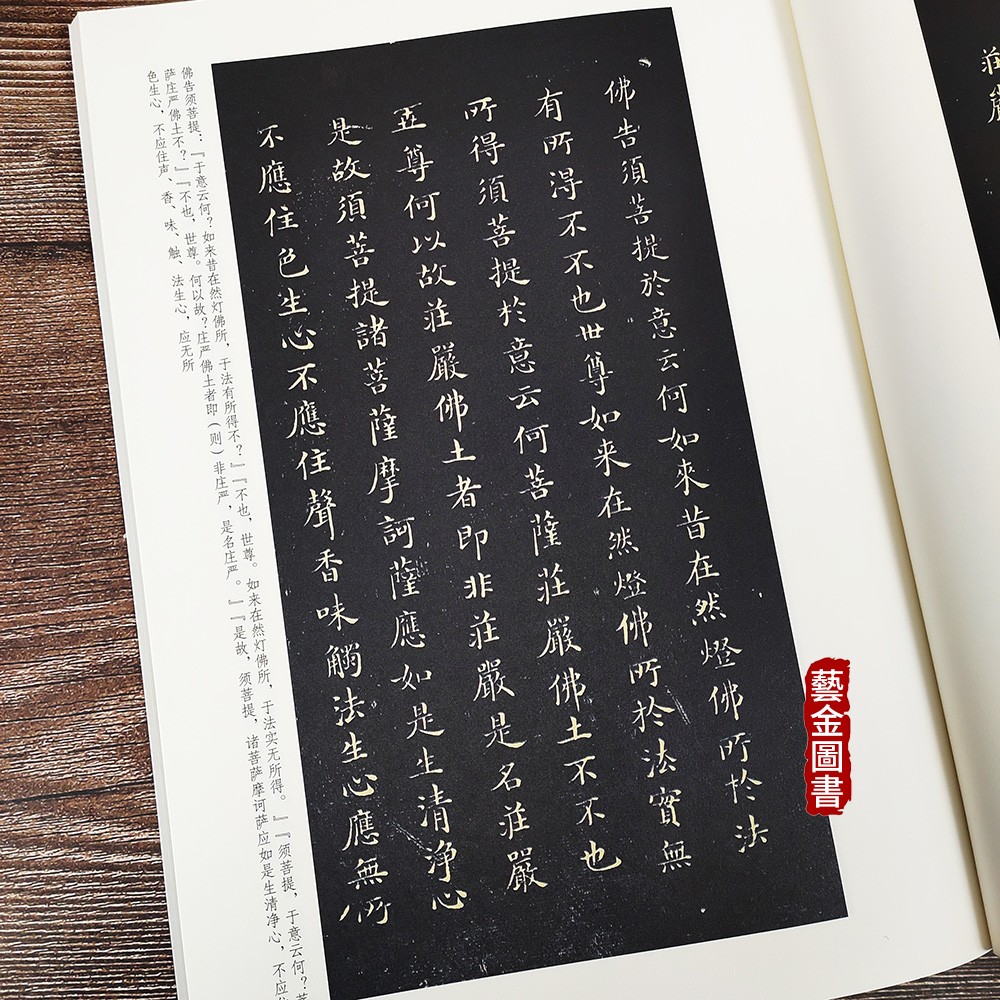 莊嚴
佛告須菩提於意云何如來昔在然燈佛所於法
有所得不不也世尊如来在然燈佛所於法實無
所得須菩提於意云何菩薩莊嚴佛土不不也
世尊何以故莊嚴佛土者即非莊嚴是名莊嚴
是故須菩提諸菩薩摩訶薩應如是生清淨心
不應住色生心不應住聲香味觸法生心應無所
佛告须菩提：『于意云何？如来昔在然灯佛所，于法有所得不？』『不也，世尊。如来在然灯佛所，于法实无所得。』『须菩提，于意云何？菩
萨庄严佛土不？』『不也，世尊。何以故？庄严佛土者即（则）非庄严，是名庄严。』『是故，须菩提，诸菩萨摩诃萨应如是生清净心，不应住
色生心，不应住声、香、味、触、法生心，应无所
藝金圖書